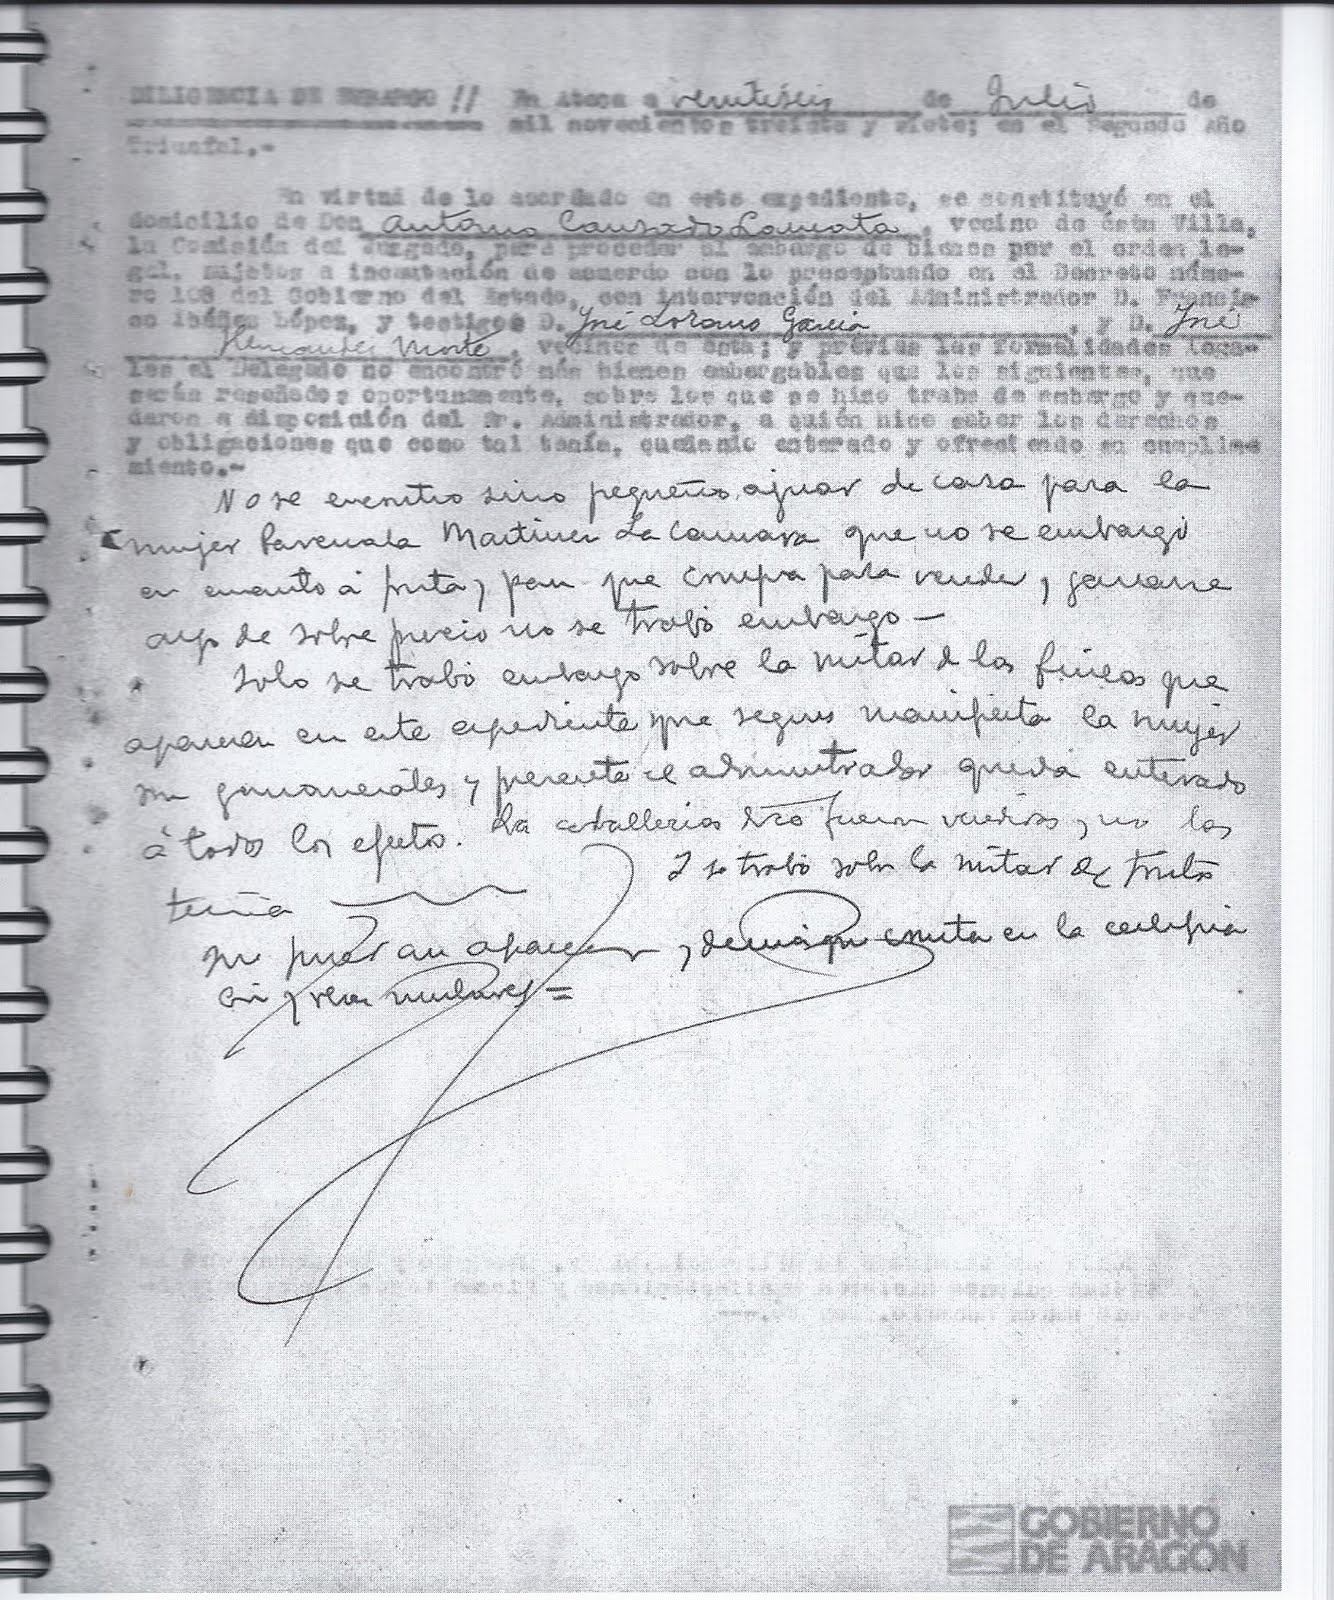 DILIGENCIA DE EMBARGO // En Ateca a veintiseis de Julio de
mil novecientos treinta y siete; en el Segundo Año
Triunfal.-
En virtud de lo acordado en este expediente, se constituyó en el
domicilio de Don Antonio Cansado Lamata, vecino de ésta Villa,
la Comisión del Juzgado, para proceder al embargo de bienes por el orden le-
gal, sujetos a incautación de acuerdo con lo preceptuado en el Decreto núme-
ro 108 del Gobierno del Estado, con intervención del Administrador D. Francis-
co Ibáñez López, y testigos D. José Lozano García, y D. José
Hernandez Monte, vecinos de ésta; y previas las formalidades lega-
les el Delegado no encontró más bienes embargables que los siguientes, que
serán reseñados oportunamente, sobre los que se hizo traba de embargo y que-
daron a disposición del Sr. Administrador, a quién hice saber los derechos
y obligaciones que como tal tenía, quedando enterado y ofreciendo su cumpli-
miento.-
No se encontro sino pequeño ajuar de casa para la
mujer Pascuala Martinez La camara que no se embargó
en cuanto á fruta y pan que compra para vender y ganarse
algo de sobre precio no se trabó embargo —
Solo se trabó embargo sobre la mitar de las fincas que
aparecen en este expediente que segun manifiesta la mujer
son gananciales y presente el administrador queda enterado
á todos los efectos. La caballerias fueron vendidas y no las
tenia
Y se trabó sobre la mitar de frutos
que puedan aparecer y demas que consta en la
=
GOBIERNO
DE ARAGON